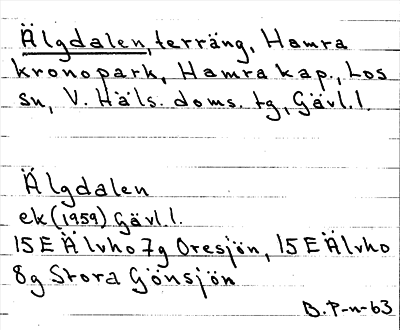 Älgdalen, terräng, Hamra
kronopark, Hamra kap., Los
sn, V. Häls. doms. tg, Gävl.l.
Älgdalen
ek (1959) Gävl.l.
15E Älvho 7g Oresjön, 15E Älvho
8g Stora Gönsjön
B.P-n-63